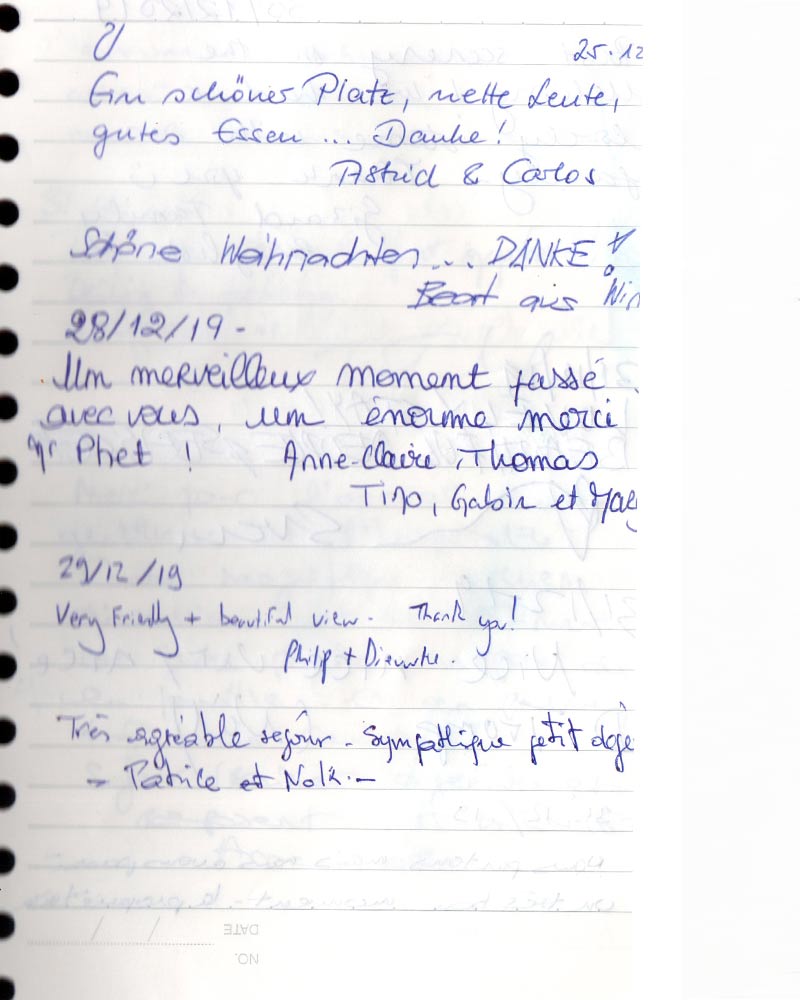 25.12
Ein schöner Platz, nette Leute,
gutes Essen... Danke!
Astrid & Carlos
Schöne Weihnachten... DANKE!
aus
28/12/19-
Un merveilleux moment passé
avec vous, un énorme merci
Mr Phet ! Anne-Claire, Thomas
Tino, et
29/12/19
Very Friendly + beautiful view. Thank you!
Philip +
Très agréable sejour - Sympathique petit
- Patrice et
DATE
NO.